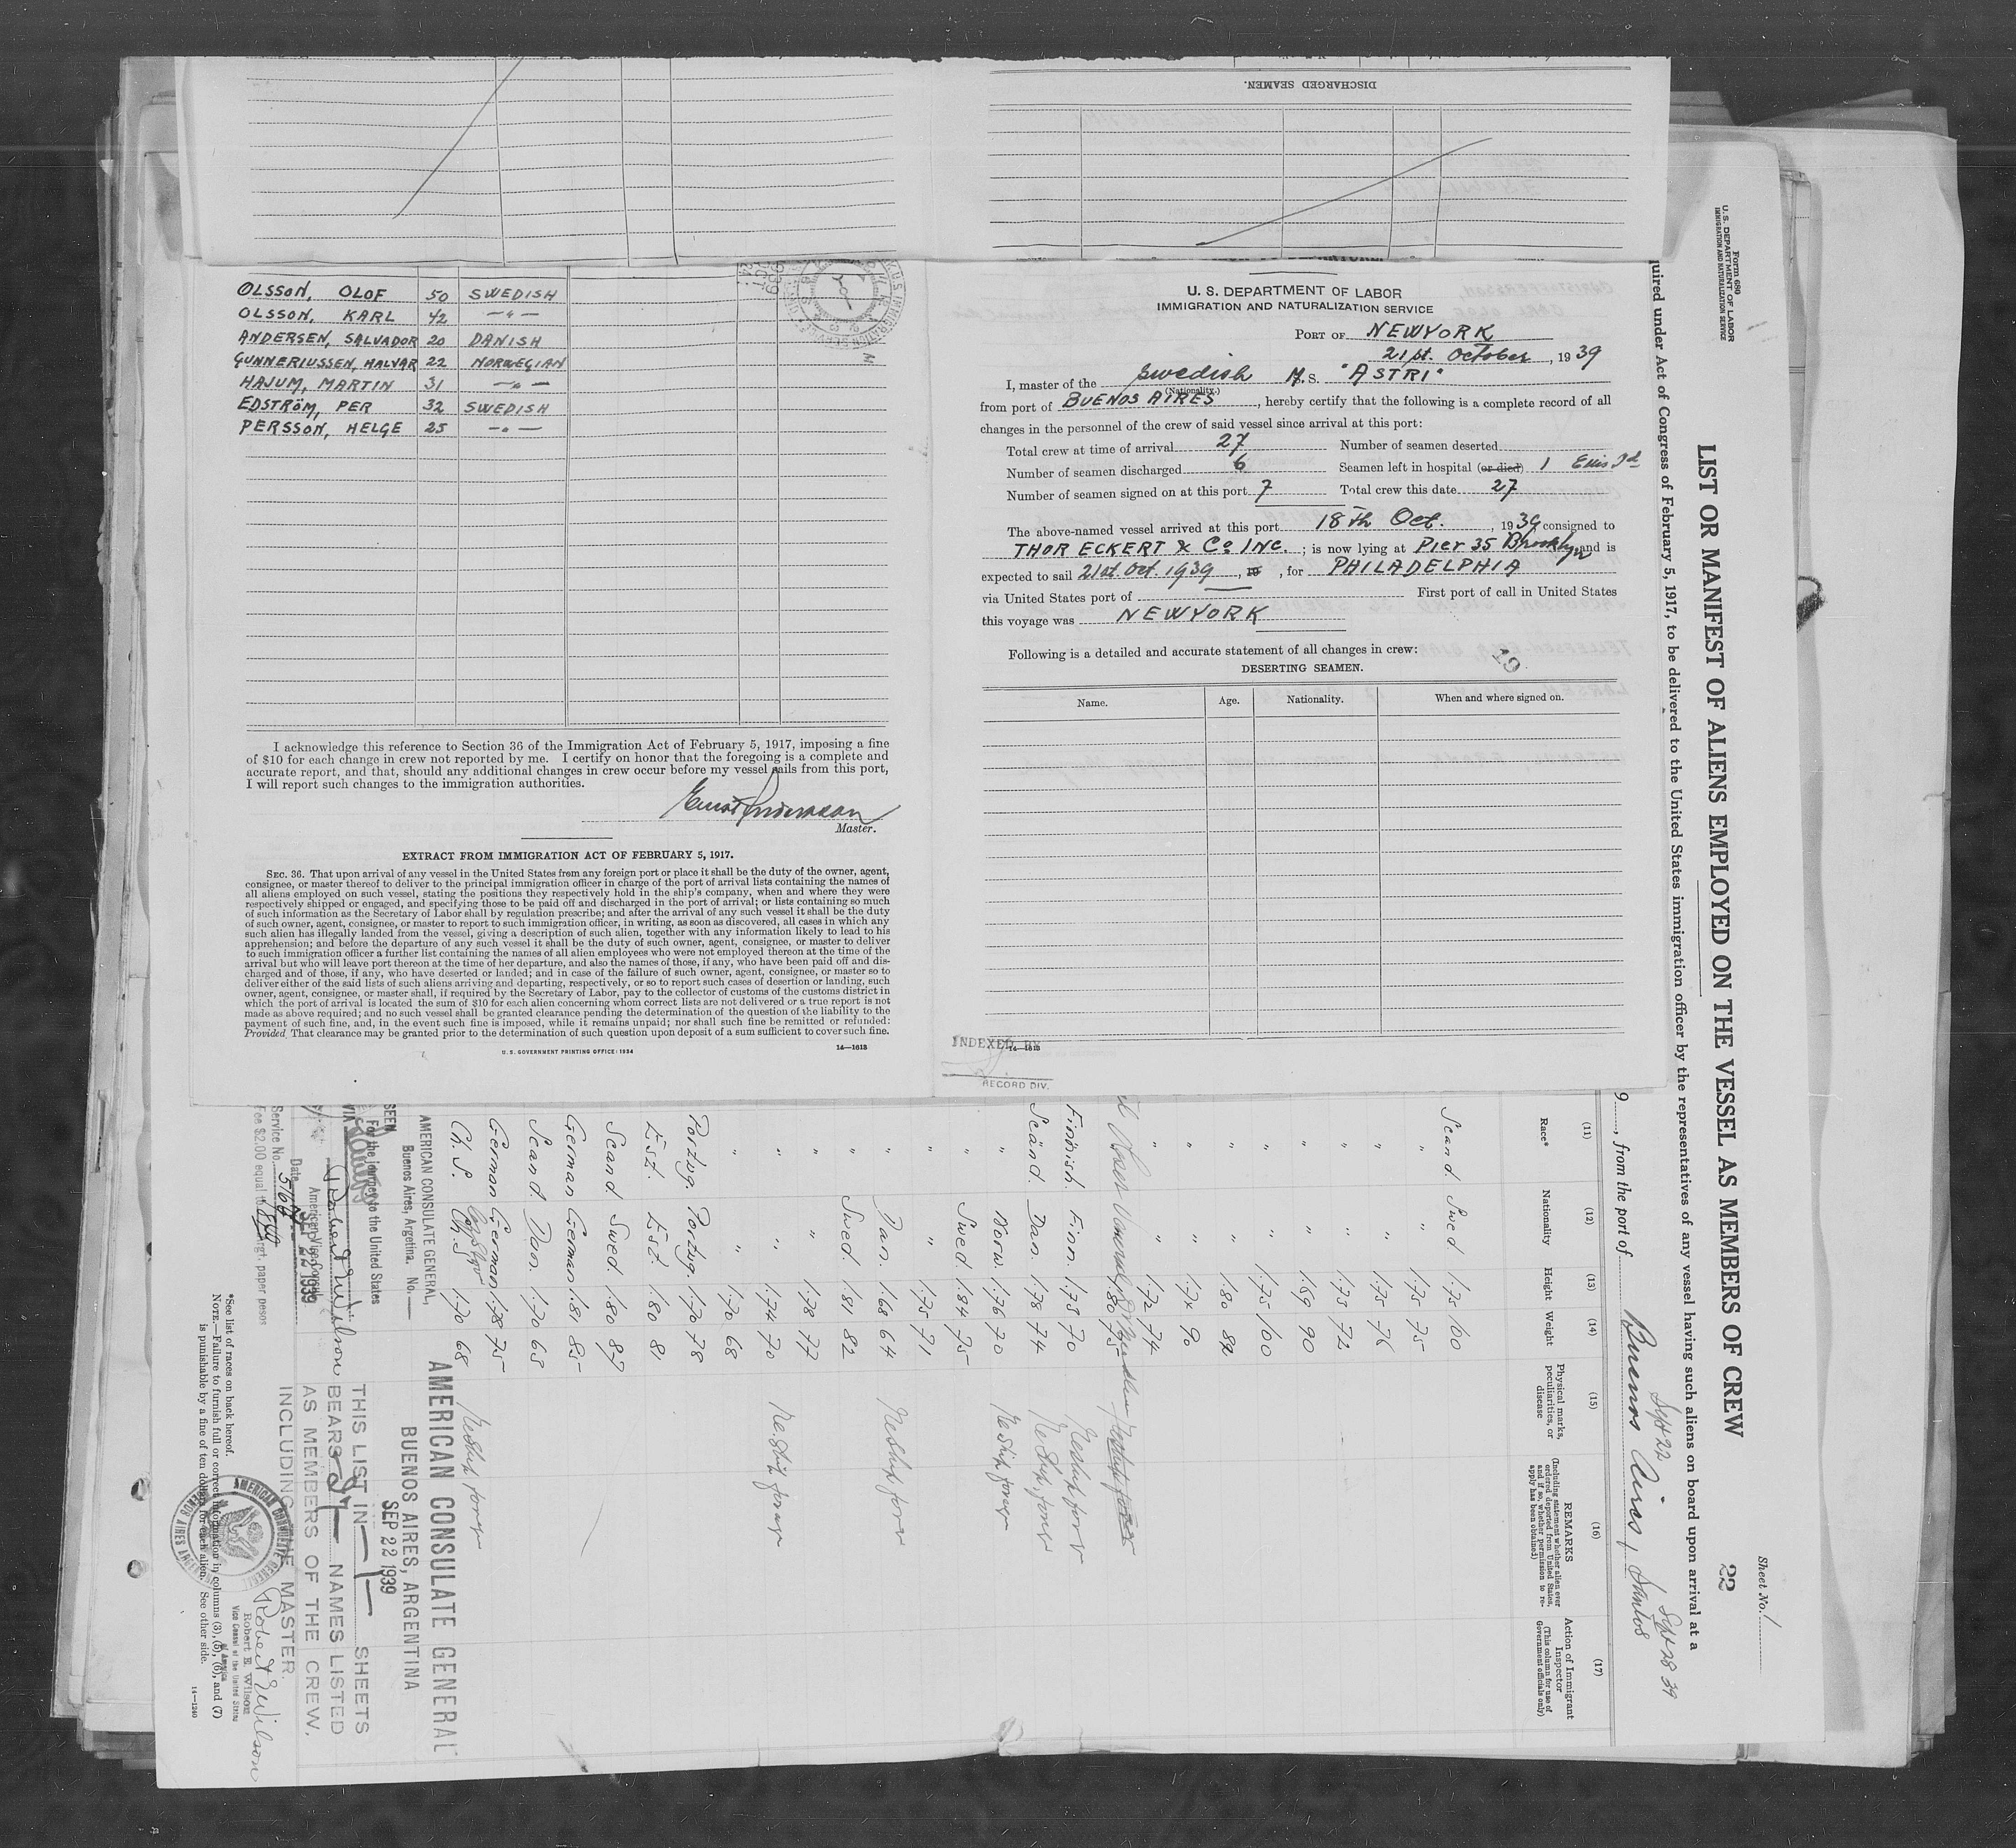 DISCHARGED SEAMEN.
OLSSON, OLOF 50 SWEDISH
OLSSON, KARL 42 — " —
ANDERSEN, SALVADOR 20 DANISH
GUNNERIUSSEN, HALVAR 22 NORWEGIAN
HAJUM, MARTIN 31 — " —
EDSTRÖM, PER 32 SWEDISH
PERSSON, HELGE 25 — " —
I acknowledge this reference to Section 36 of the Immigration Act of February 5, 1917, imposing a fine
of $10 for each change in crew not reported by me. I certify on honor that the foregoing is a complete and
accurate report, and that, should any additional changes in crew occur before my vessel sails from this port,
I will report such changes to the immigration authorities.
Master.
EXTRACT FROM IMMIGRATION ACT OF FEBRUARY 5, 1917.
SEC. 36. That upon arrival of any vessel in the United States from any foreign port or place it shall be the duty of the owner, agent,
consignee, or master thereof to deliver to the principal immigration officer in charge of the port of arrival lists containing the names of
all aliens employed on such vessel, stating the positions they respectively hold in the ship's company, when and where they were
respectively shipped or engaged, and specifying those to be paid off and discharged in the port of arrival; or lists containing so much
of such information as the Secretary of Labor shall by regulation prescribe; and after the arrival of any such vessel it shall be the duty
of such owner, agent, consignee, or master to report to such immigration officer, in writing, as soon as discovered, all cases in which any
such alien has illegally landed from the vessel, giving a description of such alien, together with any information likely to lead to his
apprehension; and before the departure of any such vessel it shall be the duty of such owner, agent, consignee, or master to deliver
to such immigration officer a further list containing the names of all alien employees who were not employed thereon at the time of the
arrival but who will leave port thereon at the time of her departure, and also the names of those, if any, who have been paid off and dis-
charged and of those, if any, who have deserted or landed; and in case of the failure of such owner, agent, consignee, or master so to
deliver either of the said lists of such aliens arriving and departing, respectively, or so to report such cases of desertion or landing, such
owner, agent, consignee, or master shall, if required by the Secretary of Labor, pay to the collector of customs of the customs district in
which the port of arrival is located the sum of $10 for each alien concerning whom correct lists are not delivered or a true report is not
made as above required; and no such vessel shall be granted clearance pending the determination of the question of the liability to the
payment of such fine, and, in the event such fine is imposed, while it remains unpaid; nor shall such fine be remitted or refunded:
Provided, That clearance may be granted prior to the determination of such question upon deposit of a sum sufficient to cover such fine.
U. S. GOVERNMENT PRINTING OFFICE: 1934 14—1613
U. S. DEPARTMENT OF LABOR
IMMIGRATION AND NATURALIZATION SERVICE
PORT OF NEWYORK
21st. October, 1939
I, master of the Swedish M. S. "ASTRI"
(Nationality.)
from port of BUENOS AIRES, hereby certify that the following is a complete record of all
changes in the personnel of the crew of said vessel since arrival at this port:
Total crew at time of arrival 27 Number of seamen deserted
Number of seamen discharged 6 Seamen left in hospital (or died) 1 Ellis Id
Number of seamen signed on at this port 7 Total crew this date 27
The above-named vessel arrived at this port 18th Oct., 1939 consigned to
THOR ECKERT & Co INC.; is now lying at Pier 35 Brooklyn and is
expected to sail 21st Oct. 1939, 19, for PHILADELPHIA
via United States port of First port of call in United States
this voyage was NEWYORK
Following is a detailed and accurate statement of all changes in crew:
19
DESERTING SEAMEN.
Name. Age. Nationality. When and where signed on.
14—1613
INDEXED BY
RECORD DIV.
Form 680
U. S. DEPARTMENT OF LABOR
IMMIGRATION AND NATURALIZATION SERVICE
Sheet No. 1
LIST OR MANIFEST OF ALIENS EMPLOYED ON THE VESSEL AS MEMBERS OF CREW 22
quired under Act of Congress of February 5, 1917, to be delivered to the United States immigration officer by the representatives of any vessel having such aliens on board upon arrival at a
Sept 22 Sept 28 39
9, from the port of Buenos Aires, Santos
(11) (12) (13) (14) (15) (16) (17)
Race* Nationality Height Weight Physical marks, peculiarities, or disease
REMARKS (Including statement whether alien ever ordered deported from United States, and if so, whether permission to re-apply has been obtained)
Action of Immigrant Inspector (This column for use of Government officials only)
Scand Swed 1.75 100
" " 1.75 75
" " 1.75 76
" " 1.73 72
" " 1.69 90
" " 1.75 100
" " 1.80 82
" " 1.74 90
" " 1.72 74
1.80 75
Finnish. Finn. 1.73 70
Scand. Dan. 1.78 74
" Norw. 1.76 70
" Swed 1.84 75
" " 1.75 71
" Dan. 1.68 64
" Swed. 1.81 82
" " 1.78 77
" " 1.74 70
" " 1.70 68
Portug. Portug. 1.70 78
Est. Est. 1.80 81
Scand Swed. 1.80 87
German German 1.81 85
Scand. Dan. 1.70 68
German German 1.78 75
Ch. S. Ch. S 1.70 68
AMERICAN CONSULATE GENERAL,
Buenos Aires, Argentina. No.
SEEN
For the journey to the United States
VIA
Robert E Wilson
American Vice Consul
Date SEP 22 1939
Service No. 5166
Fee $2.00 equal to Argt. paper pesos
AMERICAN CONSULATE GENERAL
BUENOS AIRES, ARGENTINA
SEP 22 1939
THIS LIST IN 1 SHEETS
BEARS 27 NAMES LISTED
AS MEMBERS OF THE CREW,
INCLUDING THE MASTER.
Robert E Wilson
Robert E. Wilson
Vice Consul of the United States
of America
AMERICAN CONSULATE GENERAL
BUENOS AIRES ARGENTINA
*See list of races on back hereof.
NOTE.—Failure to furnish full or correct information in columns (3), (5), (6), and (7)
is punishable by a fine of ten dollars for each alien. See other side.
14—1240